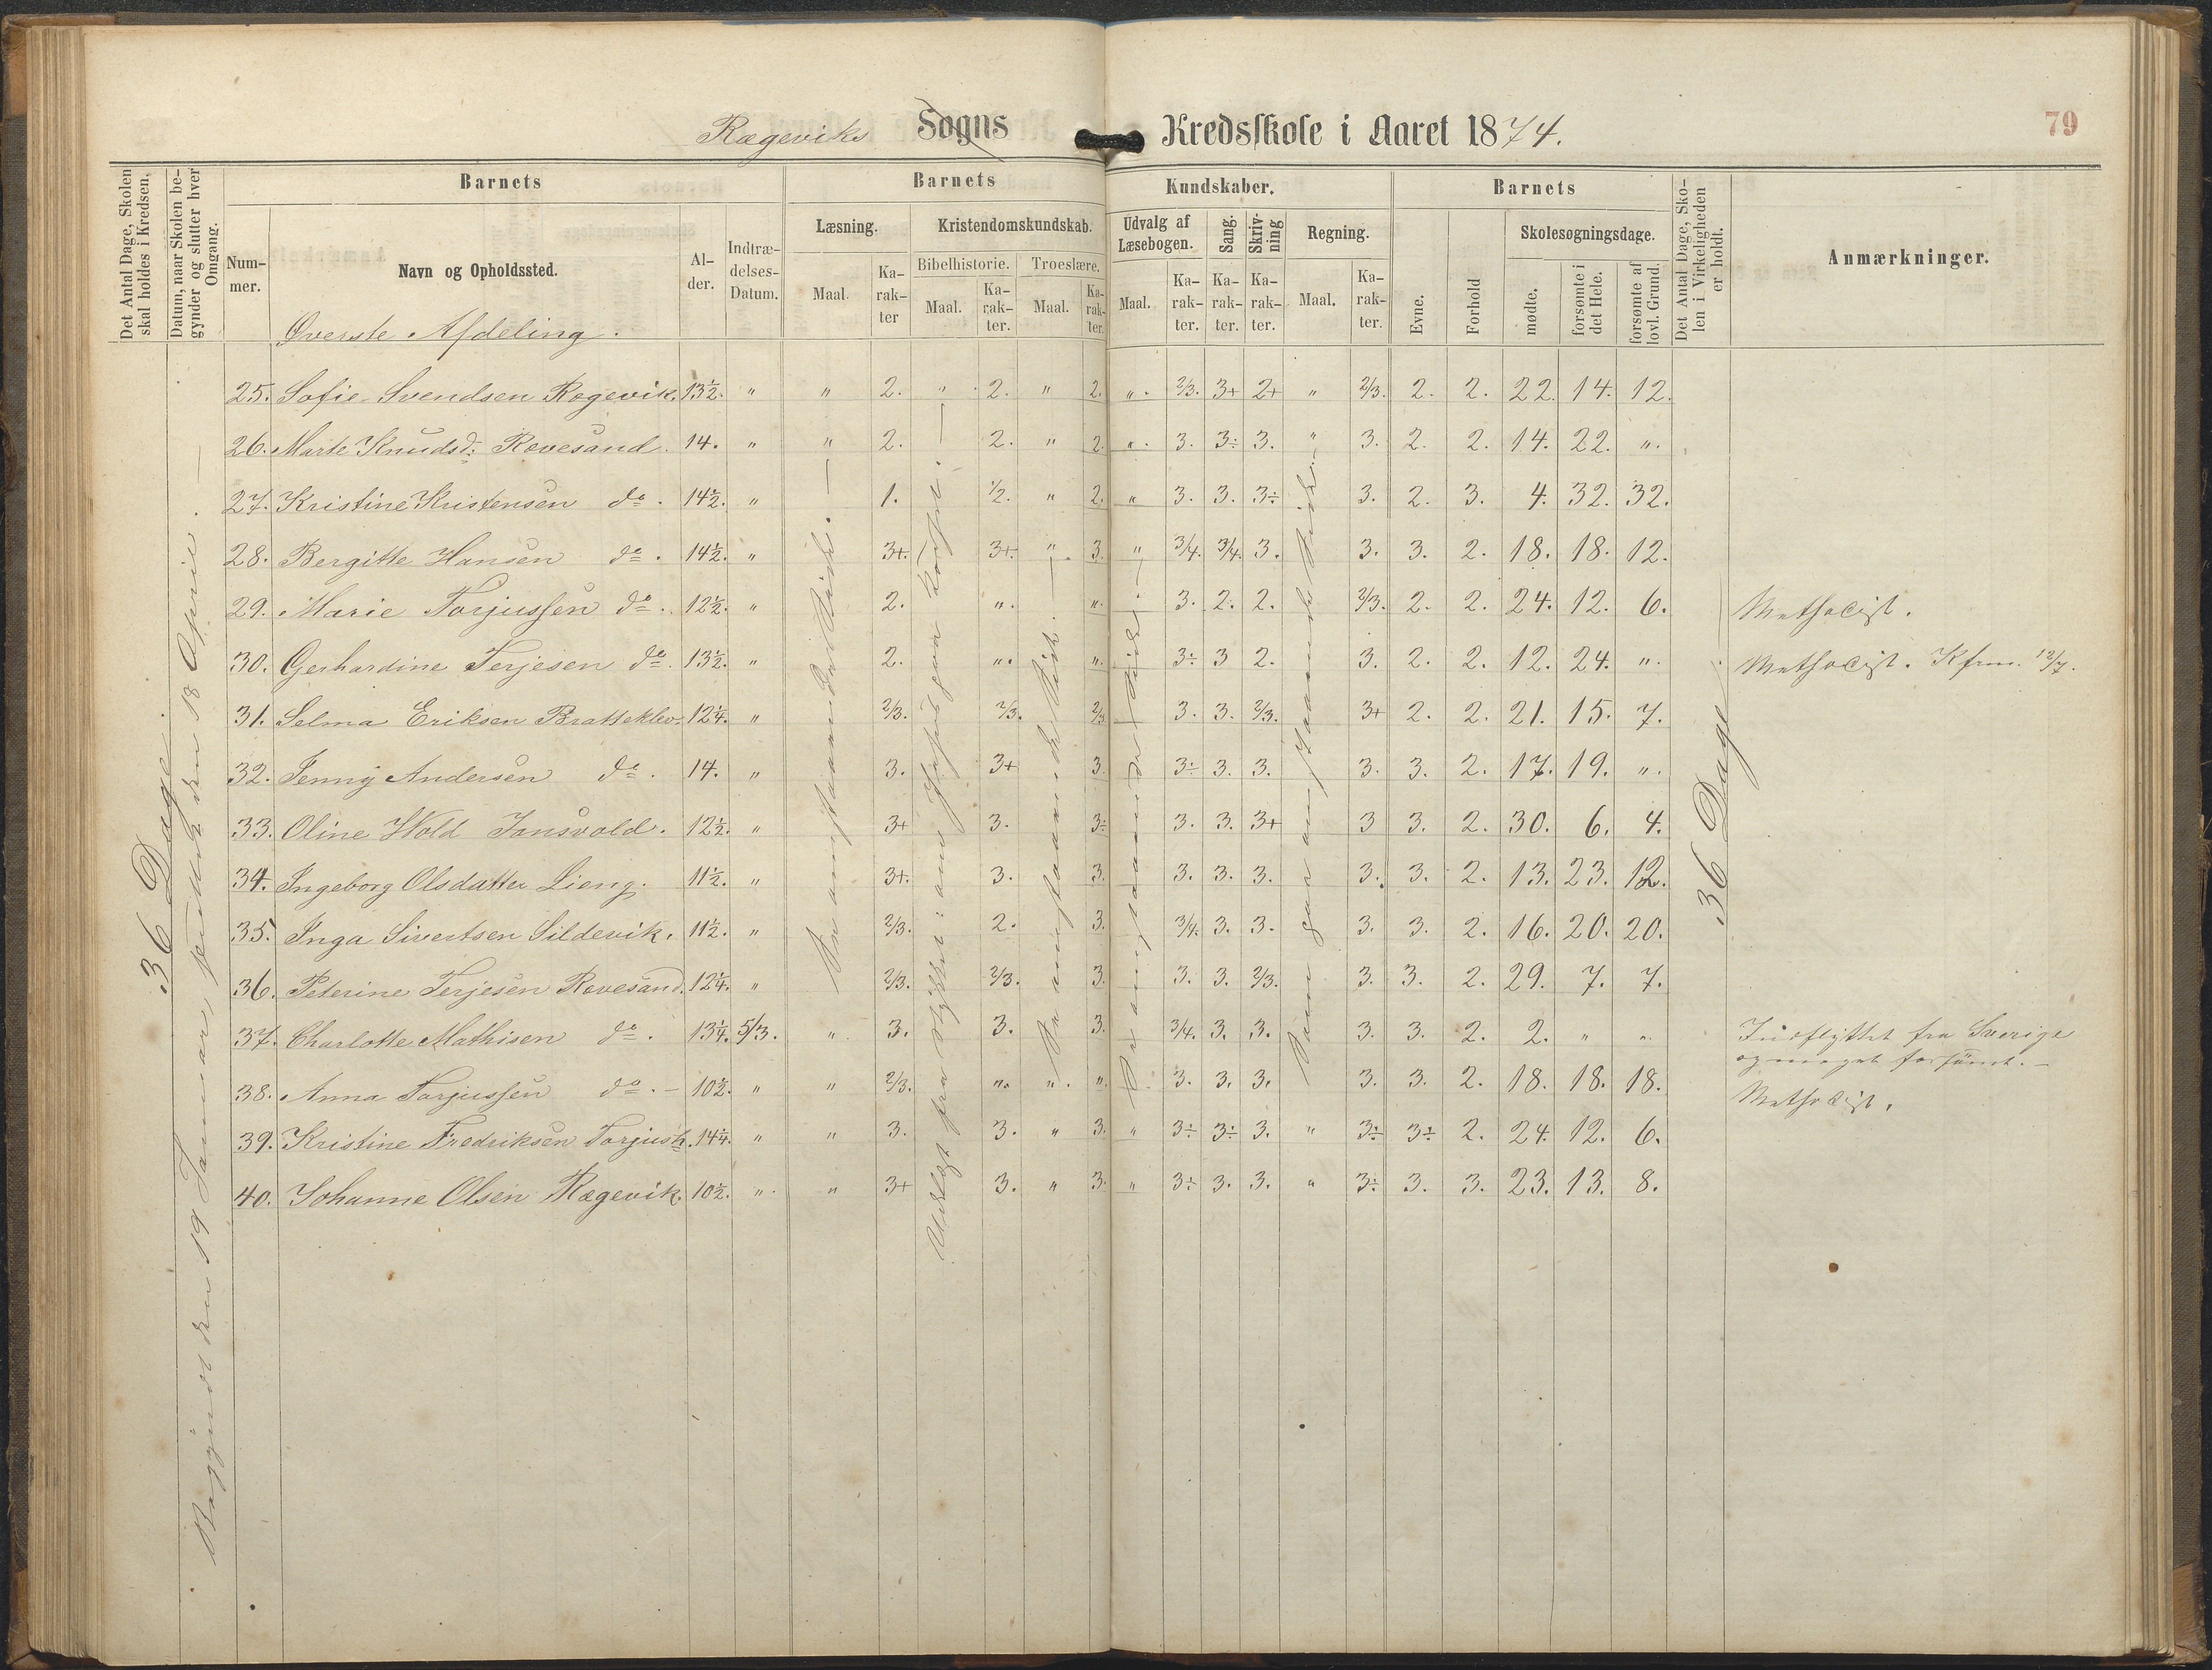 Rægeviks Sogns Kredsskole i Aaret 1874.
79
Det Antal Dage, Skolen skal holdes i Kredsen.
Datum, naar Skolen begynder og slutter hver Omgang.
Barnets
Barnets
Kundskaber.
Barnets
Det Antal Dage, Skolen i Virkeligheden er holdt.
Anmærkninger.
Nummer.
Navn og Opholdssted.
Alder.
Indtrædelses-Datum.
Læsning.
Kristendomskundskab.
Udvalg af Læsebogen.
Sang.
Skrivning
Regning.
Evne.
Forhold
Skolesøgningsdage.
Bibelhistorie.
Troeslære.
Maal.
Karakter
Maal.
Karakter.
Maal.
Karakter.
Maal.
Karakter.
Karakter.
Karakter.
Maal.
Karakter.
mødte.
forsømte i det Hele.
forsømte af lovl. Grund.
Øverste Afdeling.
36 Dage.
den 19 Januar, den 18 April.
25. Sofie Svendsen Rægevik. 13½. " " 2. " 2. " 2. ". 2/3. 3+ 2+ " 2/3. 2. 2. 22. 14. 12.
26. Marte Knudsd: Rovesand. 14. " " 2. 2. " 2. ". 3. 3÷ 3. " 3. 2. 2. 14. 22. ".
27. Kristine Kristensen do. 14½. " 1. ½. " 2. " 3. 3. 3÷ 3. 2. 3. 4. 32. 32.
28. Bergitte Hansen do. 14½. " 3+. 3+. " 3. " 3/4. 3/4. 3. 3. 3. 2. 18. 18. 12.
29. Marie Torjussen do. 12½. " 2. ". ". 3. 2. 2. 2/3. 2. 2. 24. 12. 6. Methodist.
30. Gerhardine Terjesen do. 13½. " 2. ". ". 3÷ 3 2. 3. 2. 2. 12. 24. ". Methodist. Kfrm. 12/7.
31. Selma Eriksen Bratteklev. 12¼. " 2/3. 2/3. 2/3 3. 3. 2/3. 3+ 2. 2. 21. 15. 7.
32. Jenny Andersen do. 14. " 3. 3+ 3. 3÷ 3. 3. 3. 3. 2. 17. 19. ".
33. Oline Wold Jansvold. 12½. " 3+ 3. 3÷ 3. 3. 3+ 3 3. 2. 30. 6. 4.
34. Ingeborg Olsdatter Lieng. 11½. " 3+. 3. 3. 3. 3. 3. 3. 3. 2. 13. 23. 12.
35. Inga Sivertsen Sildevik. 11½. " 2/3. 2. 3. 3/4. 3. 3. 3. 3. 2. 16. 20. 20.
36. Peterine Terjesen Rovesand. 12¼. " 2/3. 2/3. 3. 3. 3. 2/3. 3. 3. 2. 29. 7. 7.
37. Charlotte Mathisen do. 13¼. 5/3. " 3. 3. 3. 3/4. 3. 3. 3. 3. 2. 2. " ". Indflyttet fra Sverige
og meget forsømt. –
38. Anna Torjussen do. – 10½. " " 2/3. ". ". ". 3. 3. 3. 3. 3. 2. 18. 18. 18. Methodist.
39. Kristine Fredriksen Torjush. 14¼. " " 3. 3. " 3. " 3÷ 3÷ 3. " 3÷ 3÷ 2. 24. 12. 6.
40. Johanne Olsen Rægevik. 10½. ". " 3+ 3. " 3. " 3÷ 3. 3. " 3÷ 3. 3. 23. 13. 8.
36 Dage